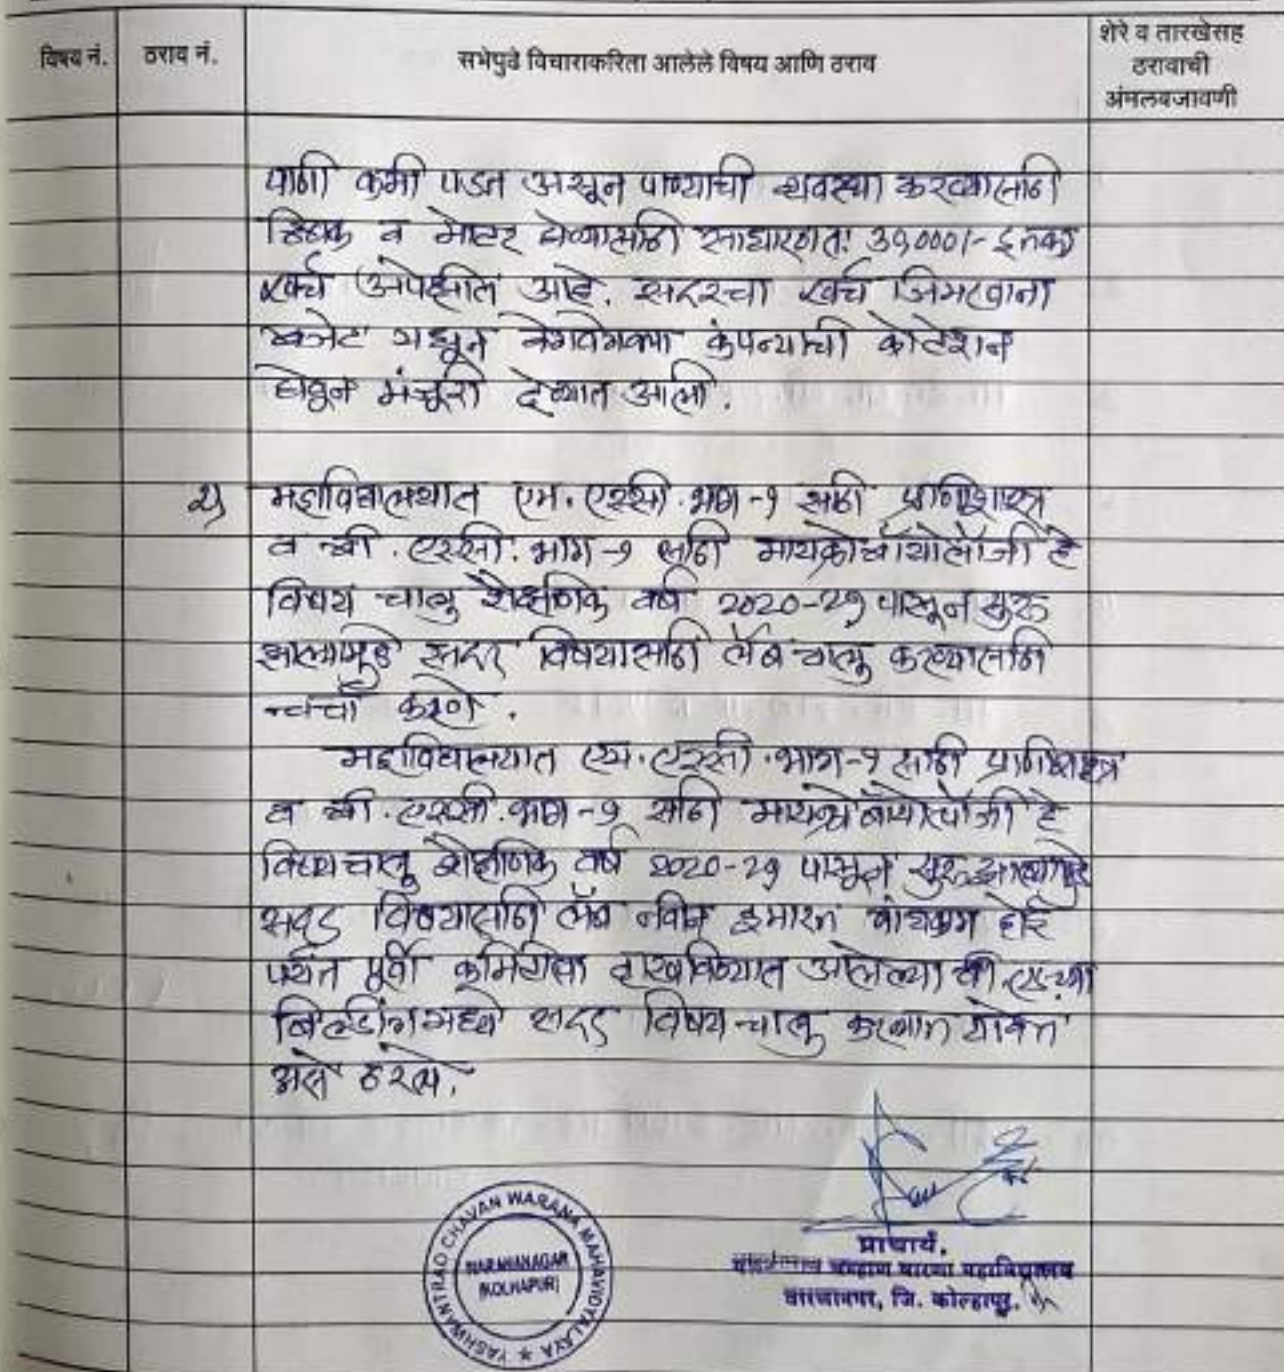 विषय नं. ठराव नं. सभेपुढे विचाराकरिता आलेले विषय आणि ठराव शेरे व तारखेसह ठरावाची अंमलबजावणी
पाणी कमी पडत असून पाण्याची व्यवस्था करण्यासाठी
व मोटर घेण्यासाठी साधारणतः इतका
खर्च अपेक्षीत आहे. सदरचा खर्च जिमखाना
बजेट मधून वेगवेगळ्या कंपन्यांची कोटेशन
घेवून मंजूरी देण्यात आली.
२) महाविद्यालयात एम.एस्सी.भाग-१ साठी प्राणिशास्त्र
व बी.एस्सी.भाग-१ साठी मायक्रोबॉयोलॉजी हे
विषय चालु शैक्षणिक वर्ष 2020-21 पासून सुरू
झाल्यामुळे सदर विषयासाठी लॅब चालु करण्यासाठी
चर्चा करणे.
महाविद्यालयात एम.एस्सी.भाग-१ साठी प्राणिशास्त्र
व बी.एस्सी.भाग-१ साठी मायक्रोबॉयोलॉजी हे
विषय चालु शैक्षणिक वर्ष 2020-21 पासून सुरू झाल्यामुळे
सदर विषयासाठी लॅब नवीन इमारत बांधकाम होई
पर्यंत पूर्वी कमिटीला दाखविण्यात आलेल्या बी.एड.च्या
बिल्डींगमध्ये सदर विषय चालु करण्यात यावेत
असे ठरले.
YASHWANTRAO CHAVAN WARANA MAHAVIDYALAYA
WARANANAGAR
(KOLHAPUR)
प्राचार्य,
यशवंतराव चव्हाण वारणा महाविद्यालय
वारणानगर, जि. कोल्हापूर.